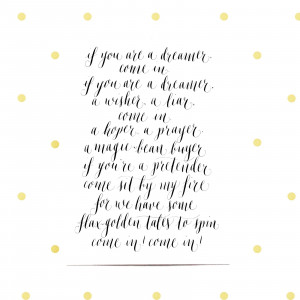 if you are a dreamer.
come in
if you are a dreamer.
a wisher. a liar.
come in.
a hoper. a prayer.
a magic-bean buyer
if you're a pretender
come sit by my fire
for we have some
flax-golden tales to spin
come in! come in!